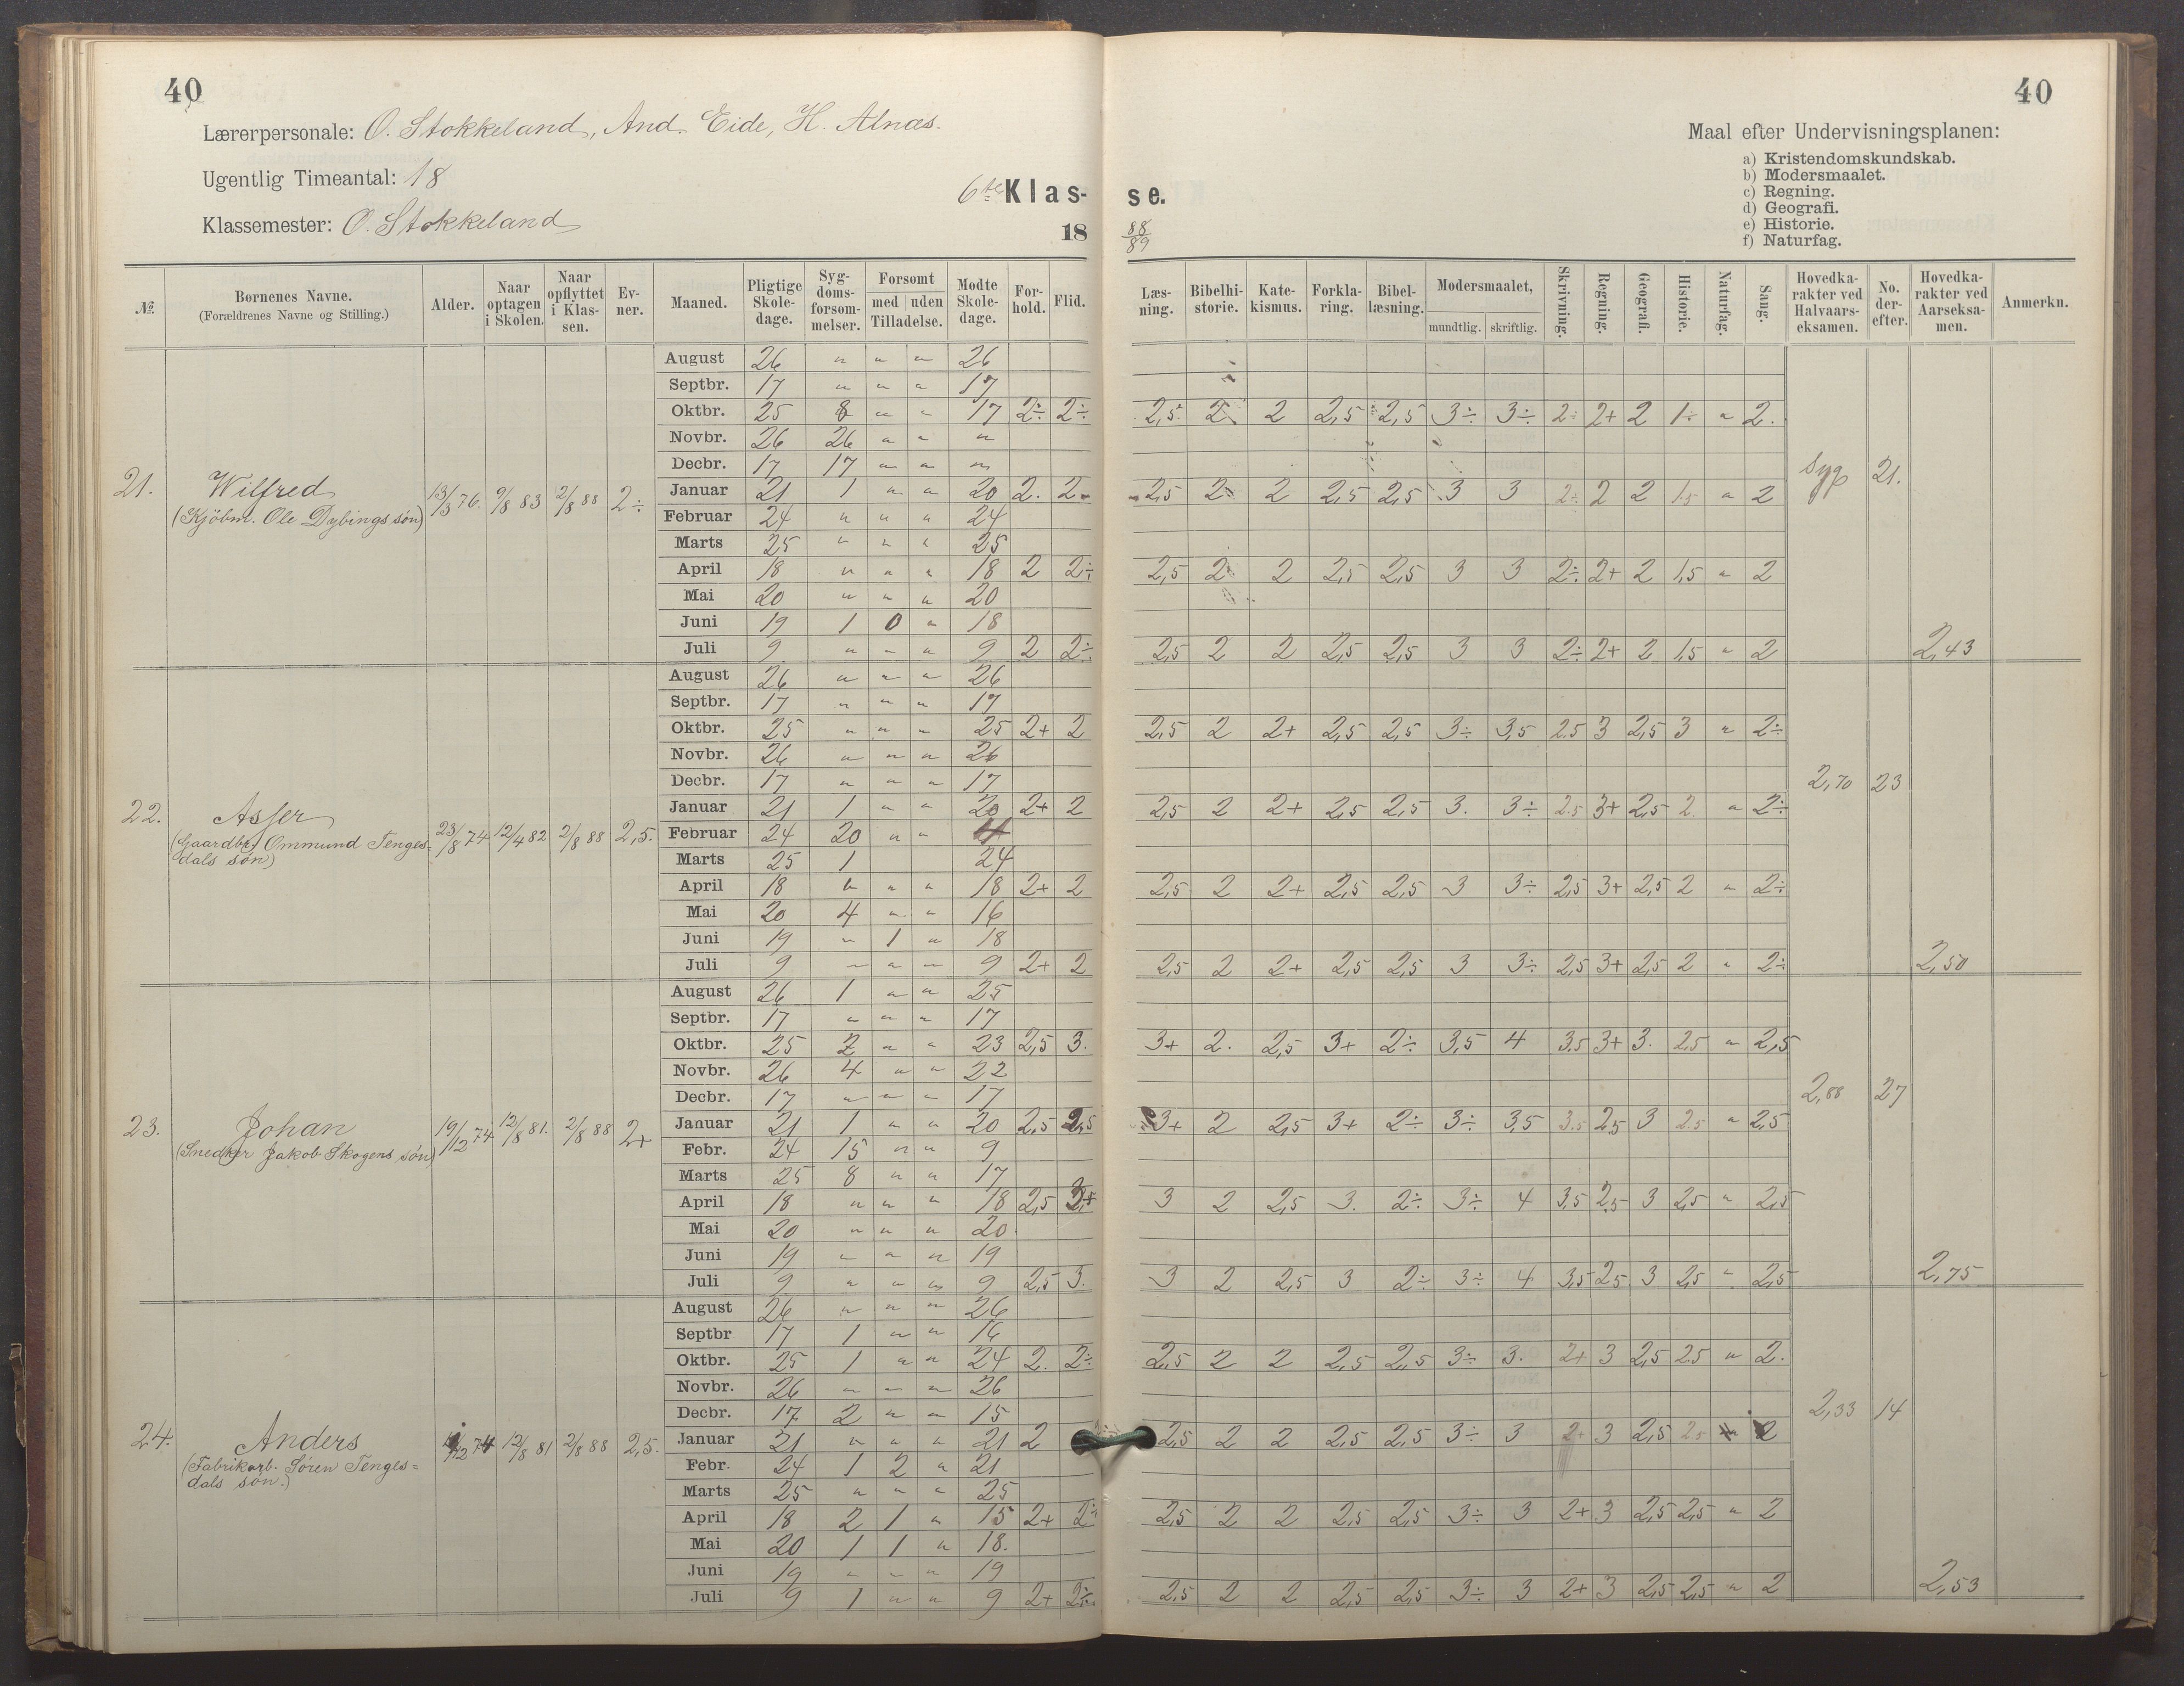 40
40
Lærerpersonale: O. Stokkeland, And. Eide, H. Alnæs.
Ugentlig Timeantal: 18
Klassemester: O. Stokkeland
6te Klas-
se.
18
88
89
Maal efter Undervisningsplanen:
a) Kristendomskundskab.
b) Modersmaalet.
c) Regning.
d) Geografi.
e) Historie.
f) Naturfag.
№. Børnenes Navne. (Forældrenes Navne og Stilling.) Alder. Naar optagen i Skolen. Naar opflyttet i Klassen. Evner. Maaned. Pligtige Skoledage. Sygdomsforsømmelser. Forsømt med uden Tilladelse. Mødte Skoledage. Forhold. Flid. Læsning. Bibelhistorie. Katekismus. Forklaring. Bibellæsning. Modersmaalet, mundtlig. skriftlig. Skrivning. Regning. Geografi. Historie. Naturfag. Sang. Hovedkarakter ved Halvaarseksamen. No. derefter. Hovedkarakter ved Aarseksamen. Anmerkn.
21. Wilfred
(Kjöbm. Ole Dybings søn)
13/3 76. 9/8 83 2/8 88 2÷
August 26 " " " 26
Septbr. 17 " " " 17
Oktbr. 25 8 " " 17 2÷ 2÷ 2,5 2 2 2,5 2,5 3÷ 3÷ 2÷ 2+ 2 1÷ " 2.
Novbr. 26 26 " " "
Decbr. 17 17 " " "
Januar 21 1 " " 20 2. 2- 2,5 2 2 2,5 2,5 3 3 2÷ 2 2 1.5 " 2
syg 21.
Februar 24 " " " 24
Marts 25 " " " 25
April 18 " " " 18 2 2÷ 2,5 2 2 2,5 2,5 3 3 2÷ 2+ 2 1,5 " 2
Mai 20 " " " 20
Juni 19 1 0 " 18
Juli 9 " " " 9 2 2÷ 2,5 2 2 2,5 2,5 3 3 2÷ 2+ 2 1,5 " 2 2,43
22. Asser
(Gaardbr. Ommund Tenges-
dals søn)
23/8 74 12/4 82 2/8 88 2,5.
August 26 " " " 26
Septbr. 17 " " " 17
Oktbr. 25 " " " 25 2+ 2 2,5 2 2+ 2,5 2,5 3÷ 3,5 2.5 3 2,5 3 " 2÷
Novbr. 26 " " " 26
Decbr. 17 " " " 17
2,70 23
Januar 21 1 " " 20 2+ 2 2,5 2 2+ 2,5 2,5 3. 3÷ 2.5 3+ 2,5 2. " 2÷
Februar 24 20 " " 4
Marts 25 1 24
April 18 " " " 18 2+ 2 2,5 2 2+ 2,5 2,5 3 3÷ 2,5 3+ 2,5 2 " 2÷
Mai 20 4 " " 16
Juni 19 " 1 " 18
Juli 9 " " " 9 2+ 2 2,5 2 2+ 2,5 2,5 3 3÷ 2,5 3+ 2,5 2 " 2÷ 2,50
23. Johan
(Snedker Jakob Skogens søn)
19/12 74 12/8 81. 2/8 88 2+
August 26 1 " " 25
Septbr. 17 " " " 17
Oktbr. 25 2 " " 23 2,5 3. 3+ 2. 2,5 3+ 2÷ 3,5 4 3.5 3+ 3. 2,5 " 2,5
Novbr. 26 4 " " 22
Decbr. 17 " " " 17
2,88 27
Januar 21 1 " " 20 2,5 2,5 3+ 2 2,5 3+ 2÷ 3÷ 3,5 3.5 2,5 3 2.5 " 2,5
Febr. 24 15 " " 9
Marts 25 8 " " 17
April 18 " " " 18 2,5 3 2 2,5 3. 2÷ 3÷ 4 3,5 2,5 3 2,5 " 2,5
Mai 20 " " " 20
Juni 19 " " " 19
Juli 9 " " " 9 2,5 3. 3 2 2,5 3 2÷ 3÷ 4 3,5 2,5 3 2,5 " 2,5 2,75
24. Anders
(Fabrikarb. Søren Tenges=
dals søn.)
/12 74 12/8 81 2/8 88 2,5.
August 26 " " " 26
Septbr 17 1 " " 16
Oktbr. 25 1 " " 24 2. 2÷ 2,5 2 2 2,5 2,5 3÷ 3. 2+ 3 2,5 2.5 " 2.
Novbr. 26 " " " 26
Decbr. 17 2 " " 15
2,33 14
Januar 21 " " " 21 2 2,5 2 2 2,5 2,5 3÷ 3 2+ 3 2,5 2.5 " 2
Febr. 24 1 2 " 21
Marts 25 " " " 25
April 18 2 1 " 15 2+ 2÷ 2,5 2 2 2,5 2,5 3÷ 3 2+ 3 2,5 2,5 " 2
Mai 20 1 1 " 18.
Juni 19 " " " 19
Juli 9 1 " " 9 2+ 2÷ 2,5 2 2 2,5 2,5 3÷ 3 2+ 3 2,5 2,5 " 2 2,53